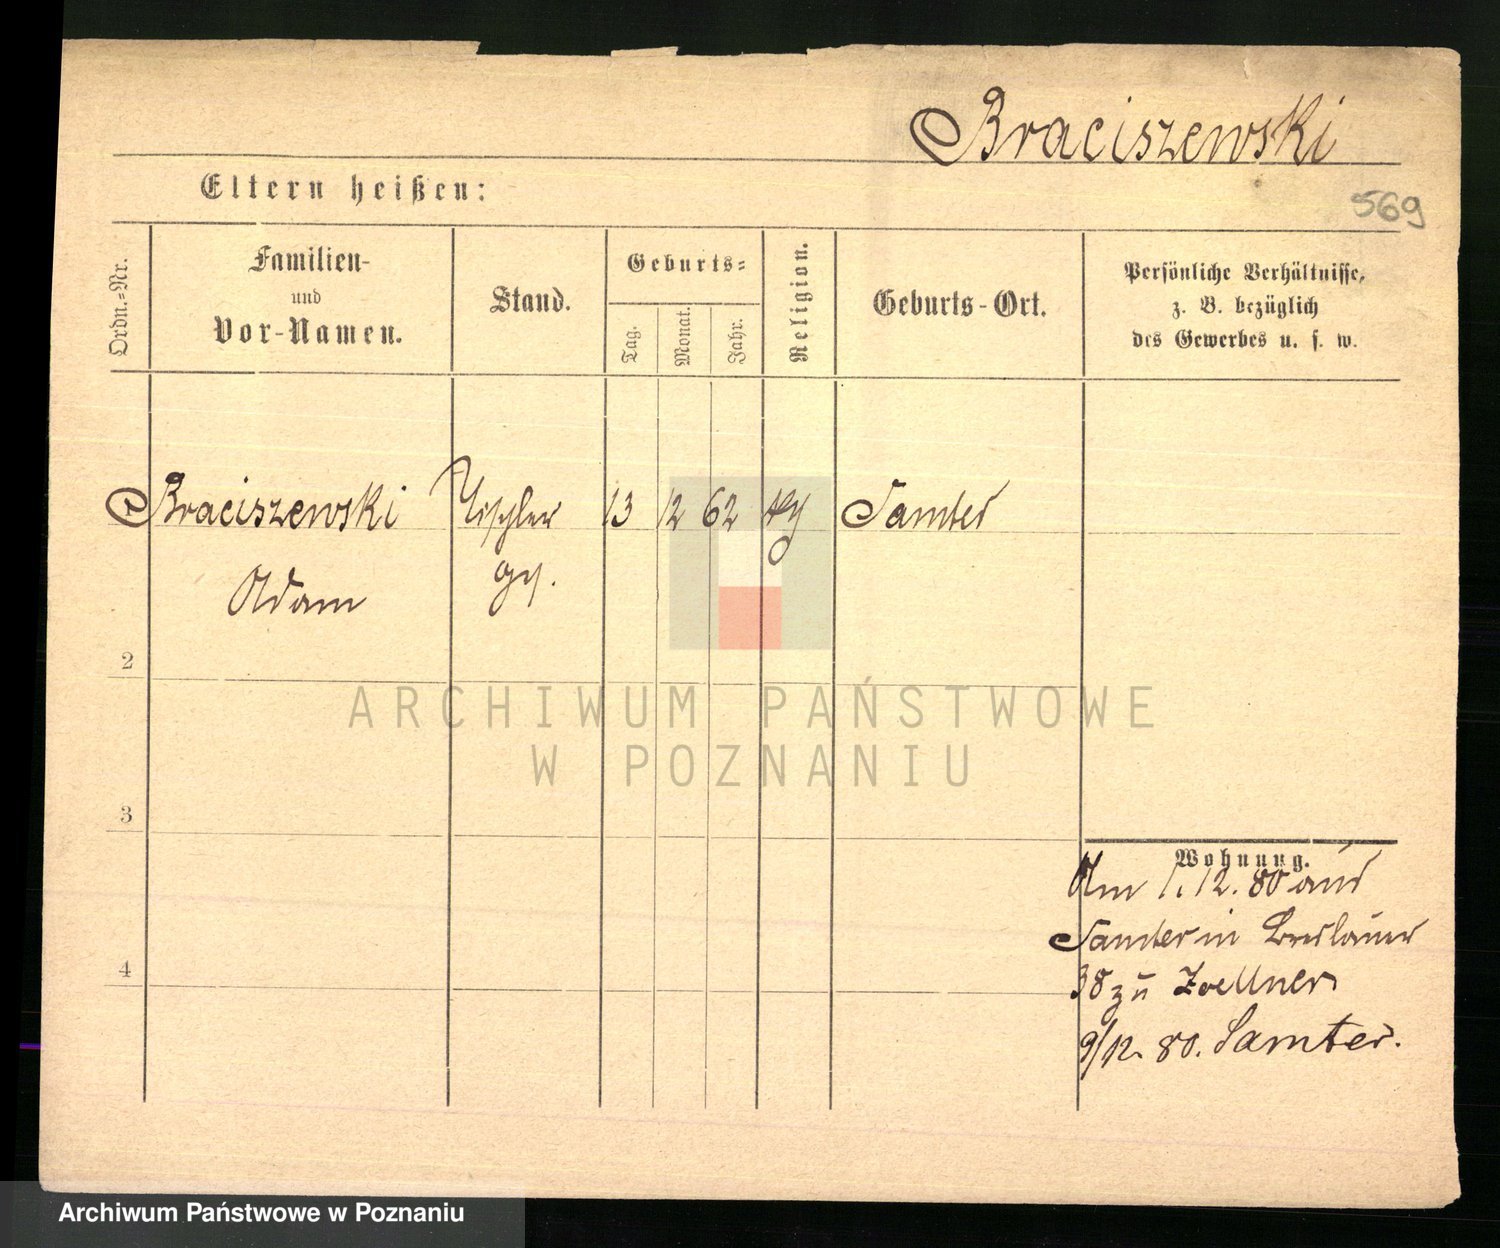 Braciszewski
Eltern heißen:
569
Ordn.-Nr.
Familien-
und
Vor-Namen.
Stand.
Geburts-
Tag.
Monat.
Jahr.
Religion.
Geburts-Ort.
Persönliche Verhältnisse,
z. B. bezüglich
des Gewerbes u. s. w.
Braciszewski Tischler 13 12 62 Samter
Adam
2
ARCHIWUM PAŃSTWOWE
W POZNANIU
3
Wohnung.
Am 1.12.80 aus
Samter in Breslauer
4
38 zu Zoellner
9/12. 80. Samter.
Archiwum Państwowe w Poznaniu